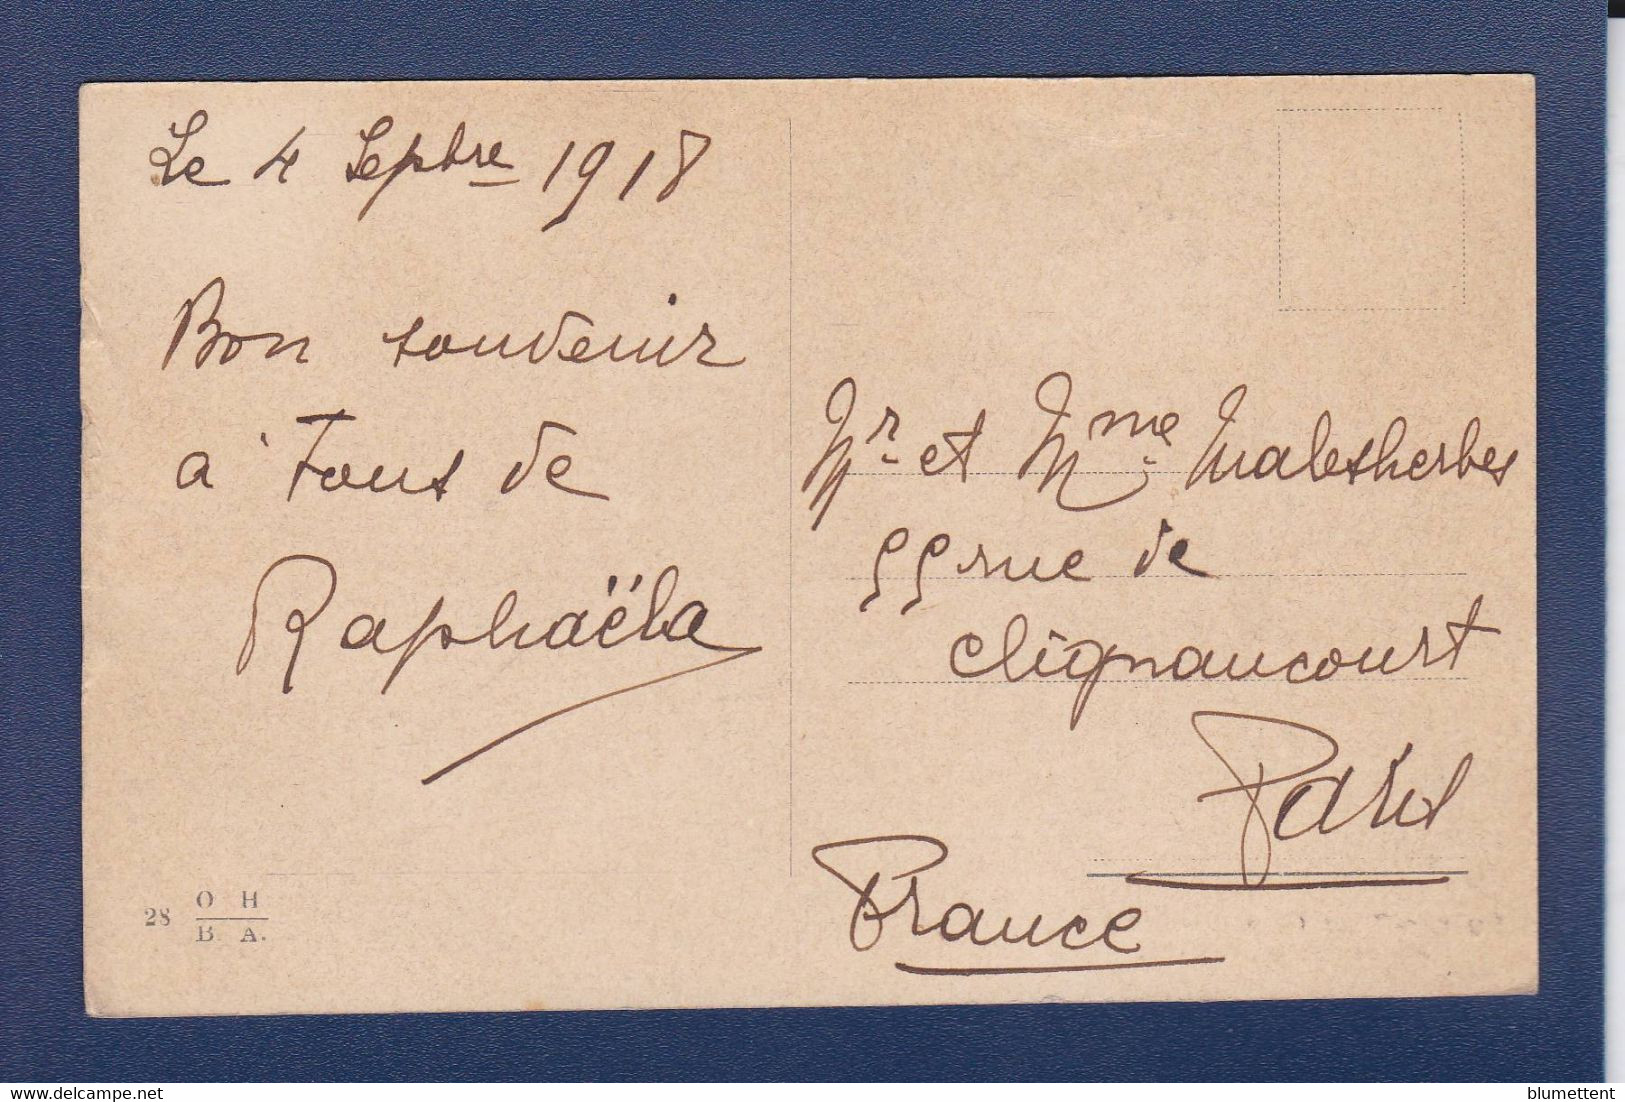 Le 4 Sepbre 1918
Bon souvenir
à Tous de
Raphaëla
Mr et Mme Malesherbes
55 rue de
Clignaucourt
Paris
France
28 O H
B. A.
blumettent